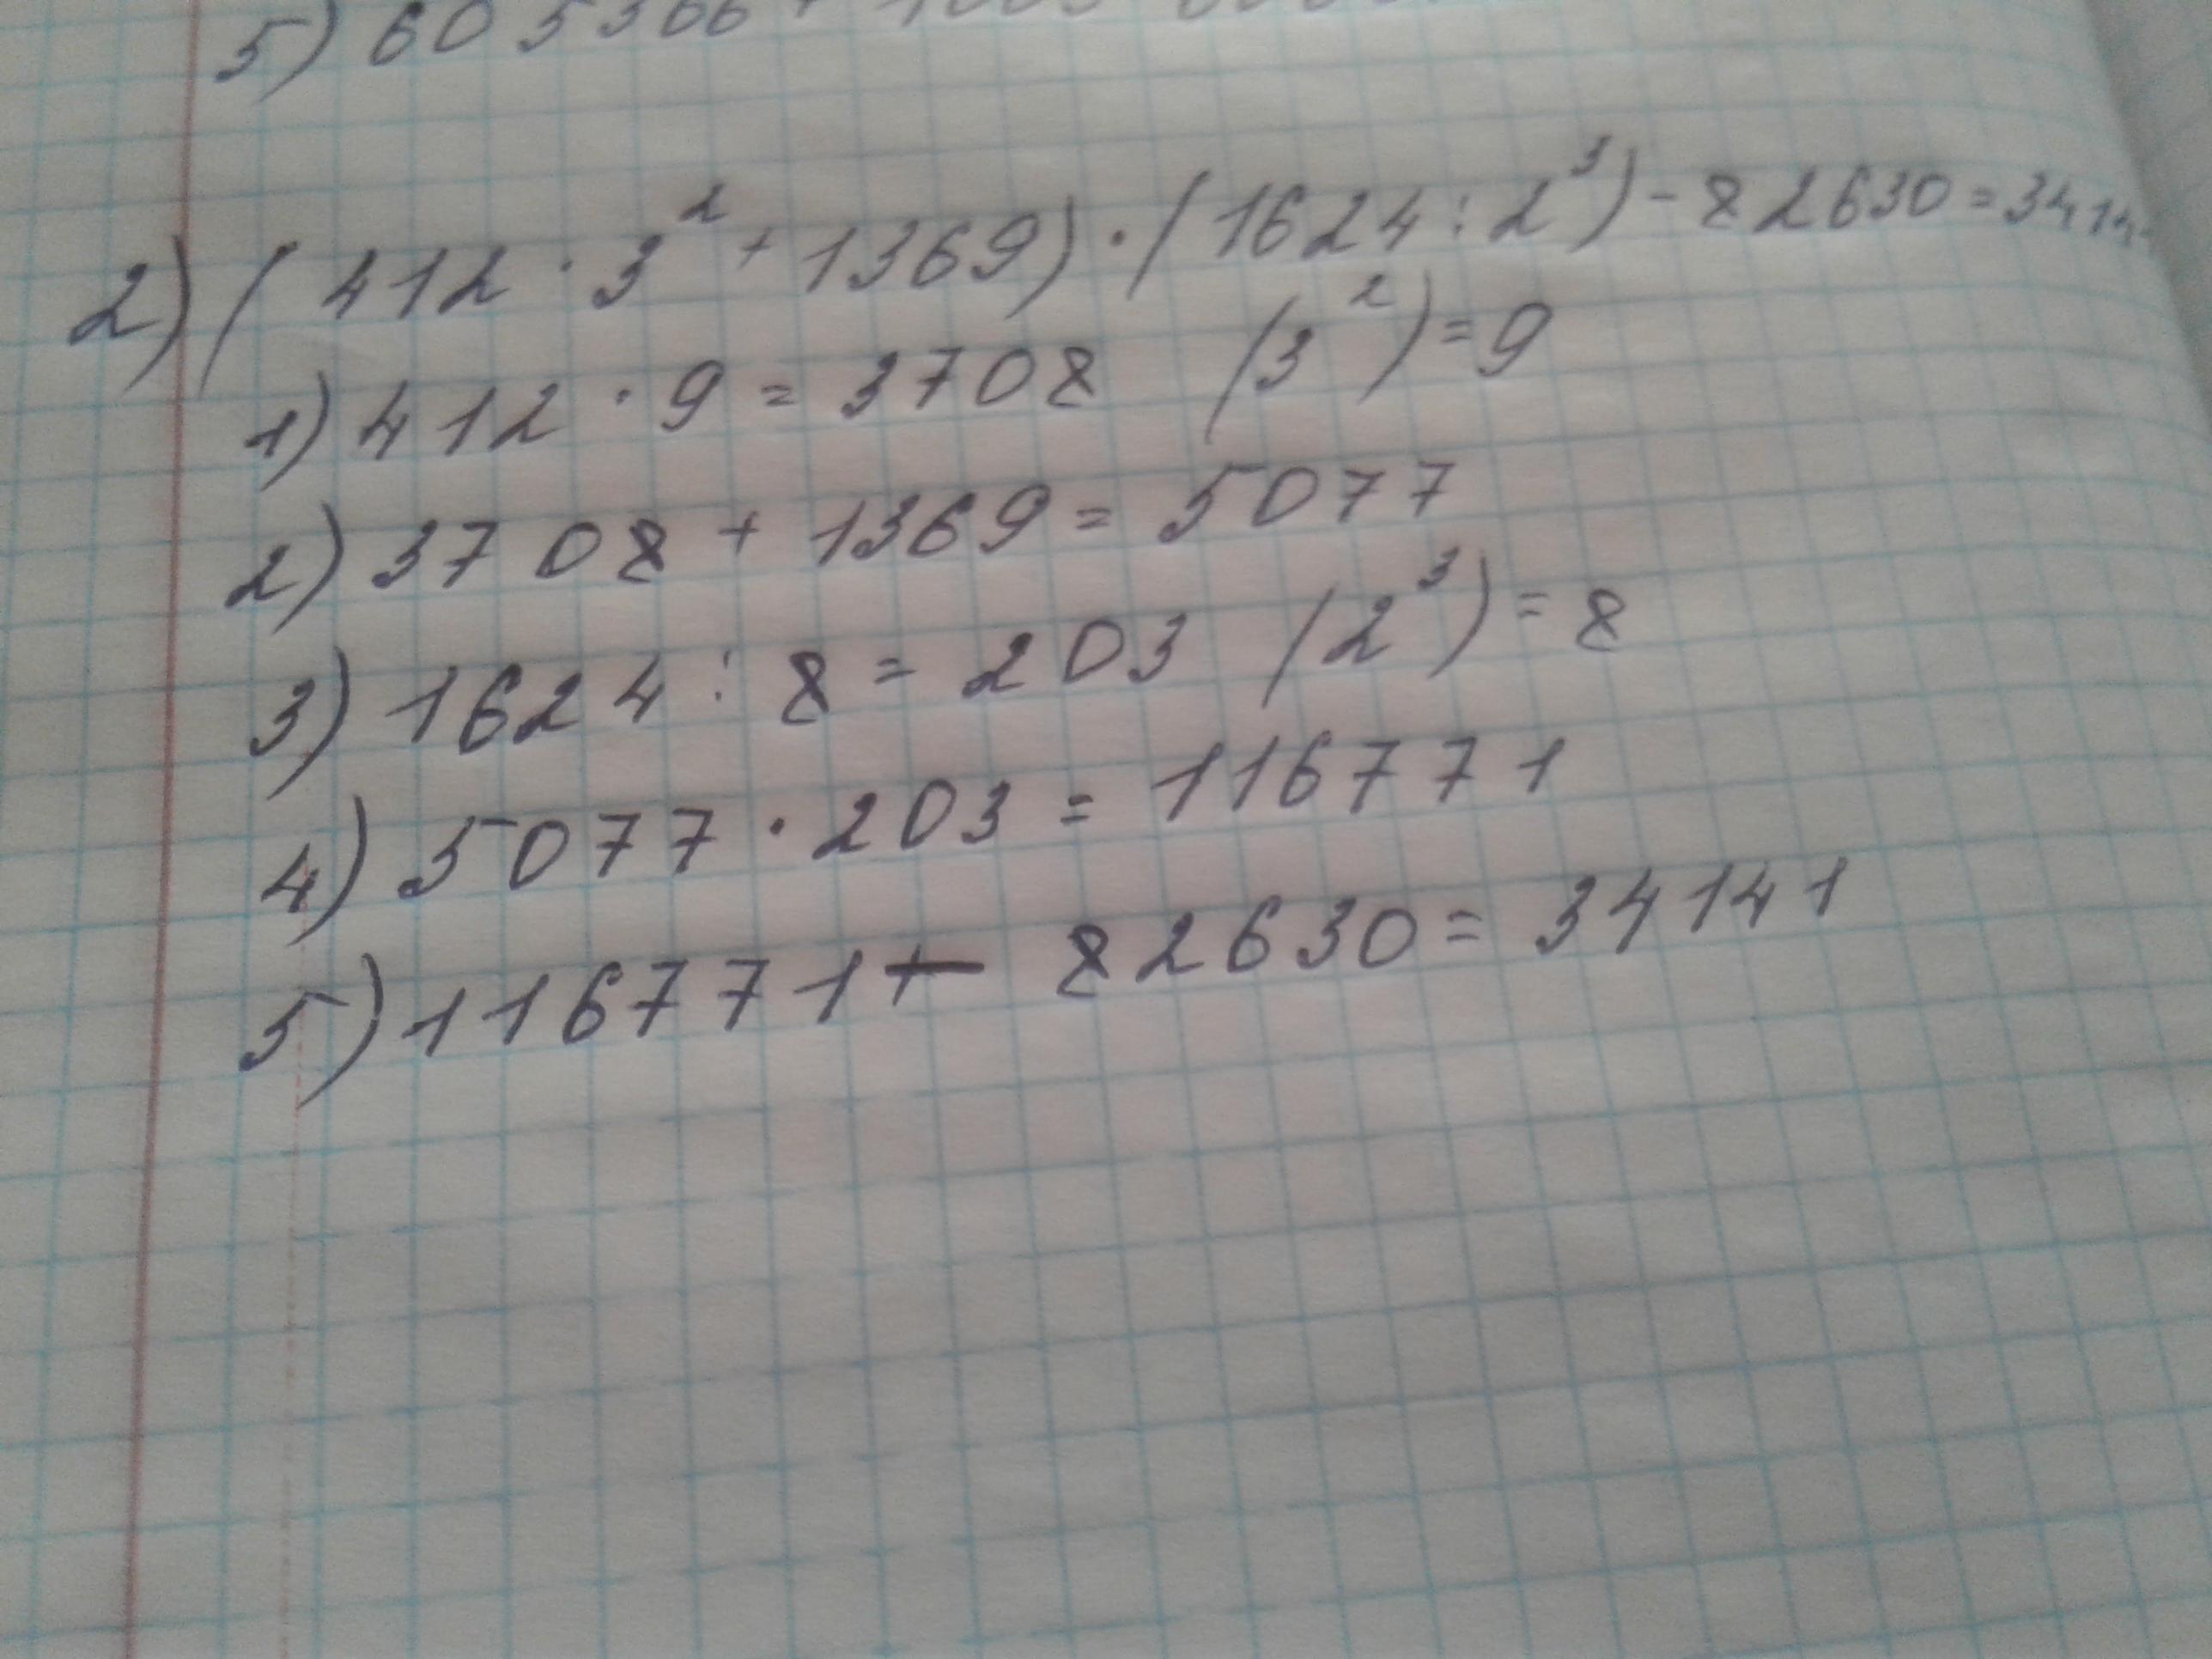 5) 605366 +
2) (412 · 3² + 1369) · (1624 : 2³) - 82630 = 3414
1) 412 · 9 = 3708 (3²) = 9
2) 3708 + 1369 = 5077
3) 1624 : 8 = 203 (2³) = 8
4) 5077 · 203 = 116771
5) 116771 - 82630 = 34141